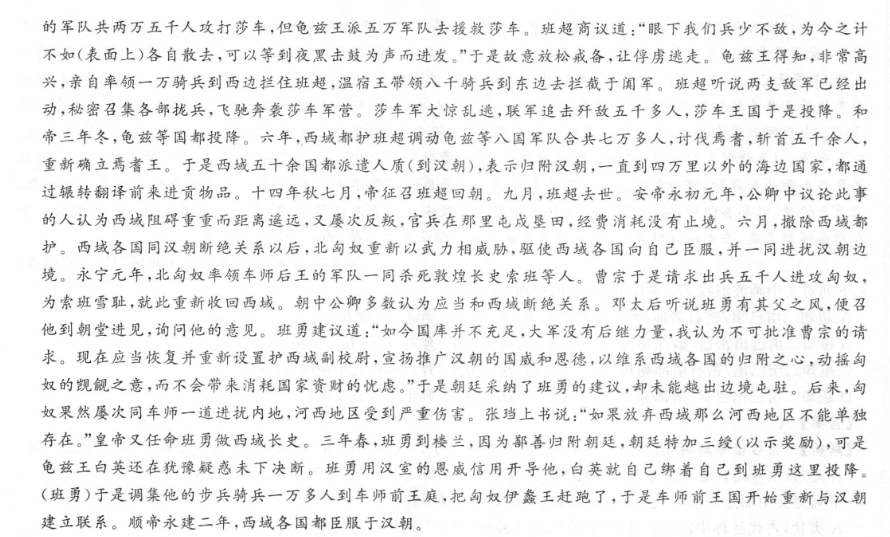 的军队共两万五千人攻打莎车,但龟兹王派五万军队去援救莎车。班超商议道:“眼下我们兵少不敌,为今之计
不如(表面上)各自散去,可以等到夜黑击鼓为声而进发。”于是故意放松戒备,让俘虏逃走。龟兹王得知,非常高
兴,亲自率领一万骑兵到西边拦住班超,温宿王带领八千骑兵到东边去拦截于阗军。班超听说两支敌军已经出
动,秘密召集各部拢兵,飞驰奔袭莎车军营。莎车军大惊乱逃,联军追击歼敌五千多人,莎车王国于是投降。和
帝三年冬,龟兹等国都投降。六年,西域都护班超调动龟兹等八国军队合共七万多人,讨伐焉耆,斩首五千余人,
重新确立焉耆王。于是西域五十余国都派遣人质(到汉朝),表示归附汉朝,一直到四万里以外的海边国家,都通
过辗转翻译前来进贡物品。十四年秋七月,帝征召班超回朝。九月,班超去世。安帝永初元年,公卿中议论此事
的人认为西域阻碍重重而距离遥远,又屡次反叛,官兵在那里屯戍垦田,经费消耗没有止境。六月,撤除西域都
护。西域各国同汉朝断绝关系以后,北匈奴重新以武力相威胁,驱使西域各国向自己臣服,并一同进扰汉朝边
境。永宁元年,北匈奴率领车师后王的军队一同杀死敦煌长史索班等人。曹宗于是请求出兵五千人进攻匈奴,
为索班雪耻,就此重新收回西域。朝中公卿多数认为应当和西域断绝关系。邓太后听说班勇有其父之风,便召
他到朝堂进见,询问他的意见。班勇建议道:“如今国库并不充足,大军没有后继力量,我认为不可批准曹宗的请
求。现在应当恢复并重新设置护西域副校尉,宣扬推广汉朝的国威和恩德,以维系西域各国的归附之心,动摇匈
奴的觊觎之意,而不会带来消耗国家资财的忧虑。”于是朝廷采纳了班勇的建议,却未能越出边境屯驻。后来,匈
奴果然屡次同车师一道进扰内地,河西地区受到严重伤害。张珰上书说:“如果放弃西域那么河西地区不能单独
存在。”皇帝又任命班勇做西域长史。三年春,班勇到楼兰,因为鄯善归附朝廷,朝廷特加三绶(以示奖励),可是
龟兹王白英还在犹豫疑惑未下决断。班勇用汉室的恩威信用开导他,白英就自己绑着自己到班勇这里投降。
(班勇)于是调集他的步兵骑兵一万多人到车师前王庭,把匈奴伊蠡王赶跑了,于是车师前王国开始重新与汉朝
建立联系。顺帝永建二年,西域各国都臣服于汉朝。